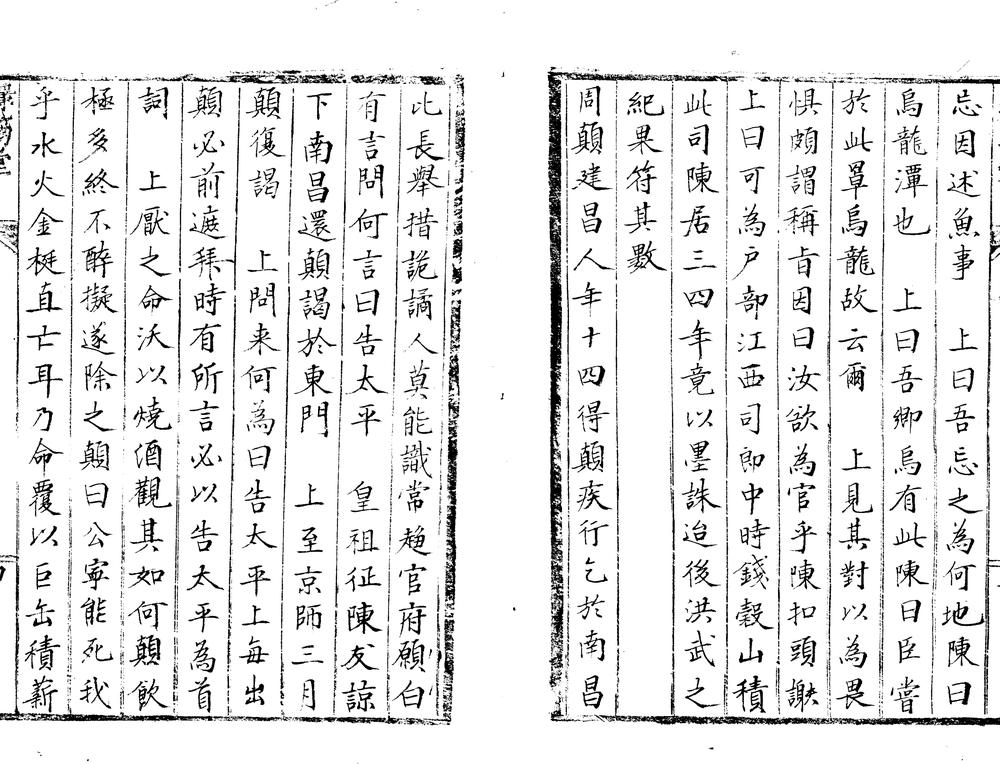 忘因述魚事　上曰吾忘之為何地陳曰
烏龍潭也　上曰吾鄉烏有此陳曰臣嘗
於此罩烏龍故云爾　上見其對以為畏
惧頗謂稱㫖因曰汝欲為官乎陳扣頭謝
上曰可為户部江西司郎中時錢穀山積
此司陳居三四年竟以墨誅迨後洪武之
紀果符其數
周顛建昌人年十四得顛疾行乞於南昌
比長舉措詭譎人莫能識常趍官府願白
有言問何言曰告太平　皇祖征陳友諒
下南昌還顛謁於東門　上至京師三月
顛復謁　上問来何為曰告太平上每出
顛必前遮拜時有所言必以告太平為首
詞　上厭之命沃以燒酒觀其如何顛飲
極多終不醉擬遂除之顛曰公寧能死我
乎水火金梃直亡耳乃命覆以巨缶積薪